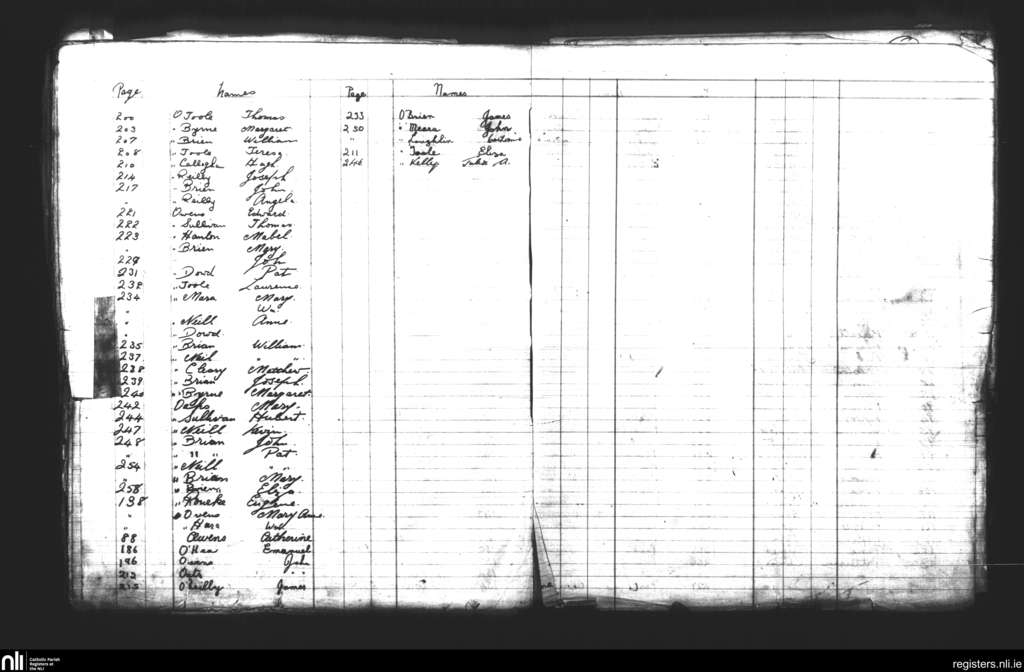 Page Names
200 O Toole Thomas
203 " Byrne Margaret
207 " Brien William
208 " Toole Teresa
210 " Calligh Hugh
214 " Reilly Joseph
217 " Brien John
" " Reilly Angela
221 Owens Edward
222 " Sullivan Thomas
223 " Hanlon Mabel
" " Brien Mary
229 John
231 " Dowd Pat
238 " Toole Laurence
234 " Mara Mary
" Wm
" " Neill Anne
" " Dowd
235 " Brian William
237 " Neil " "
238 " Cleary Matthew
239 " Brian Joseph
240 " Byrne Margaret
242 Mary
244 " Sullivan Hubert
247 " Neill Kevin
248 " Brian John
" " " " Pat
254 " Neill " "
" " Brian Mary
258 " Brien Eliza
138 " Rourke Eugene
" " Owens Mary Anne
" " Hara Wm
88 Owens Catherine
186 O'Haa Emanuel
196 John
213 " "
215 O'Reilly James
Page Names
233 O'Brien James
230 " Meara John
" " Loughlin
211 " Toole Eliza
246 " Kelly Julia A.
nli
Catholic Parish
Registers at
the NLI
registers.nli.ie